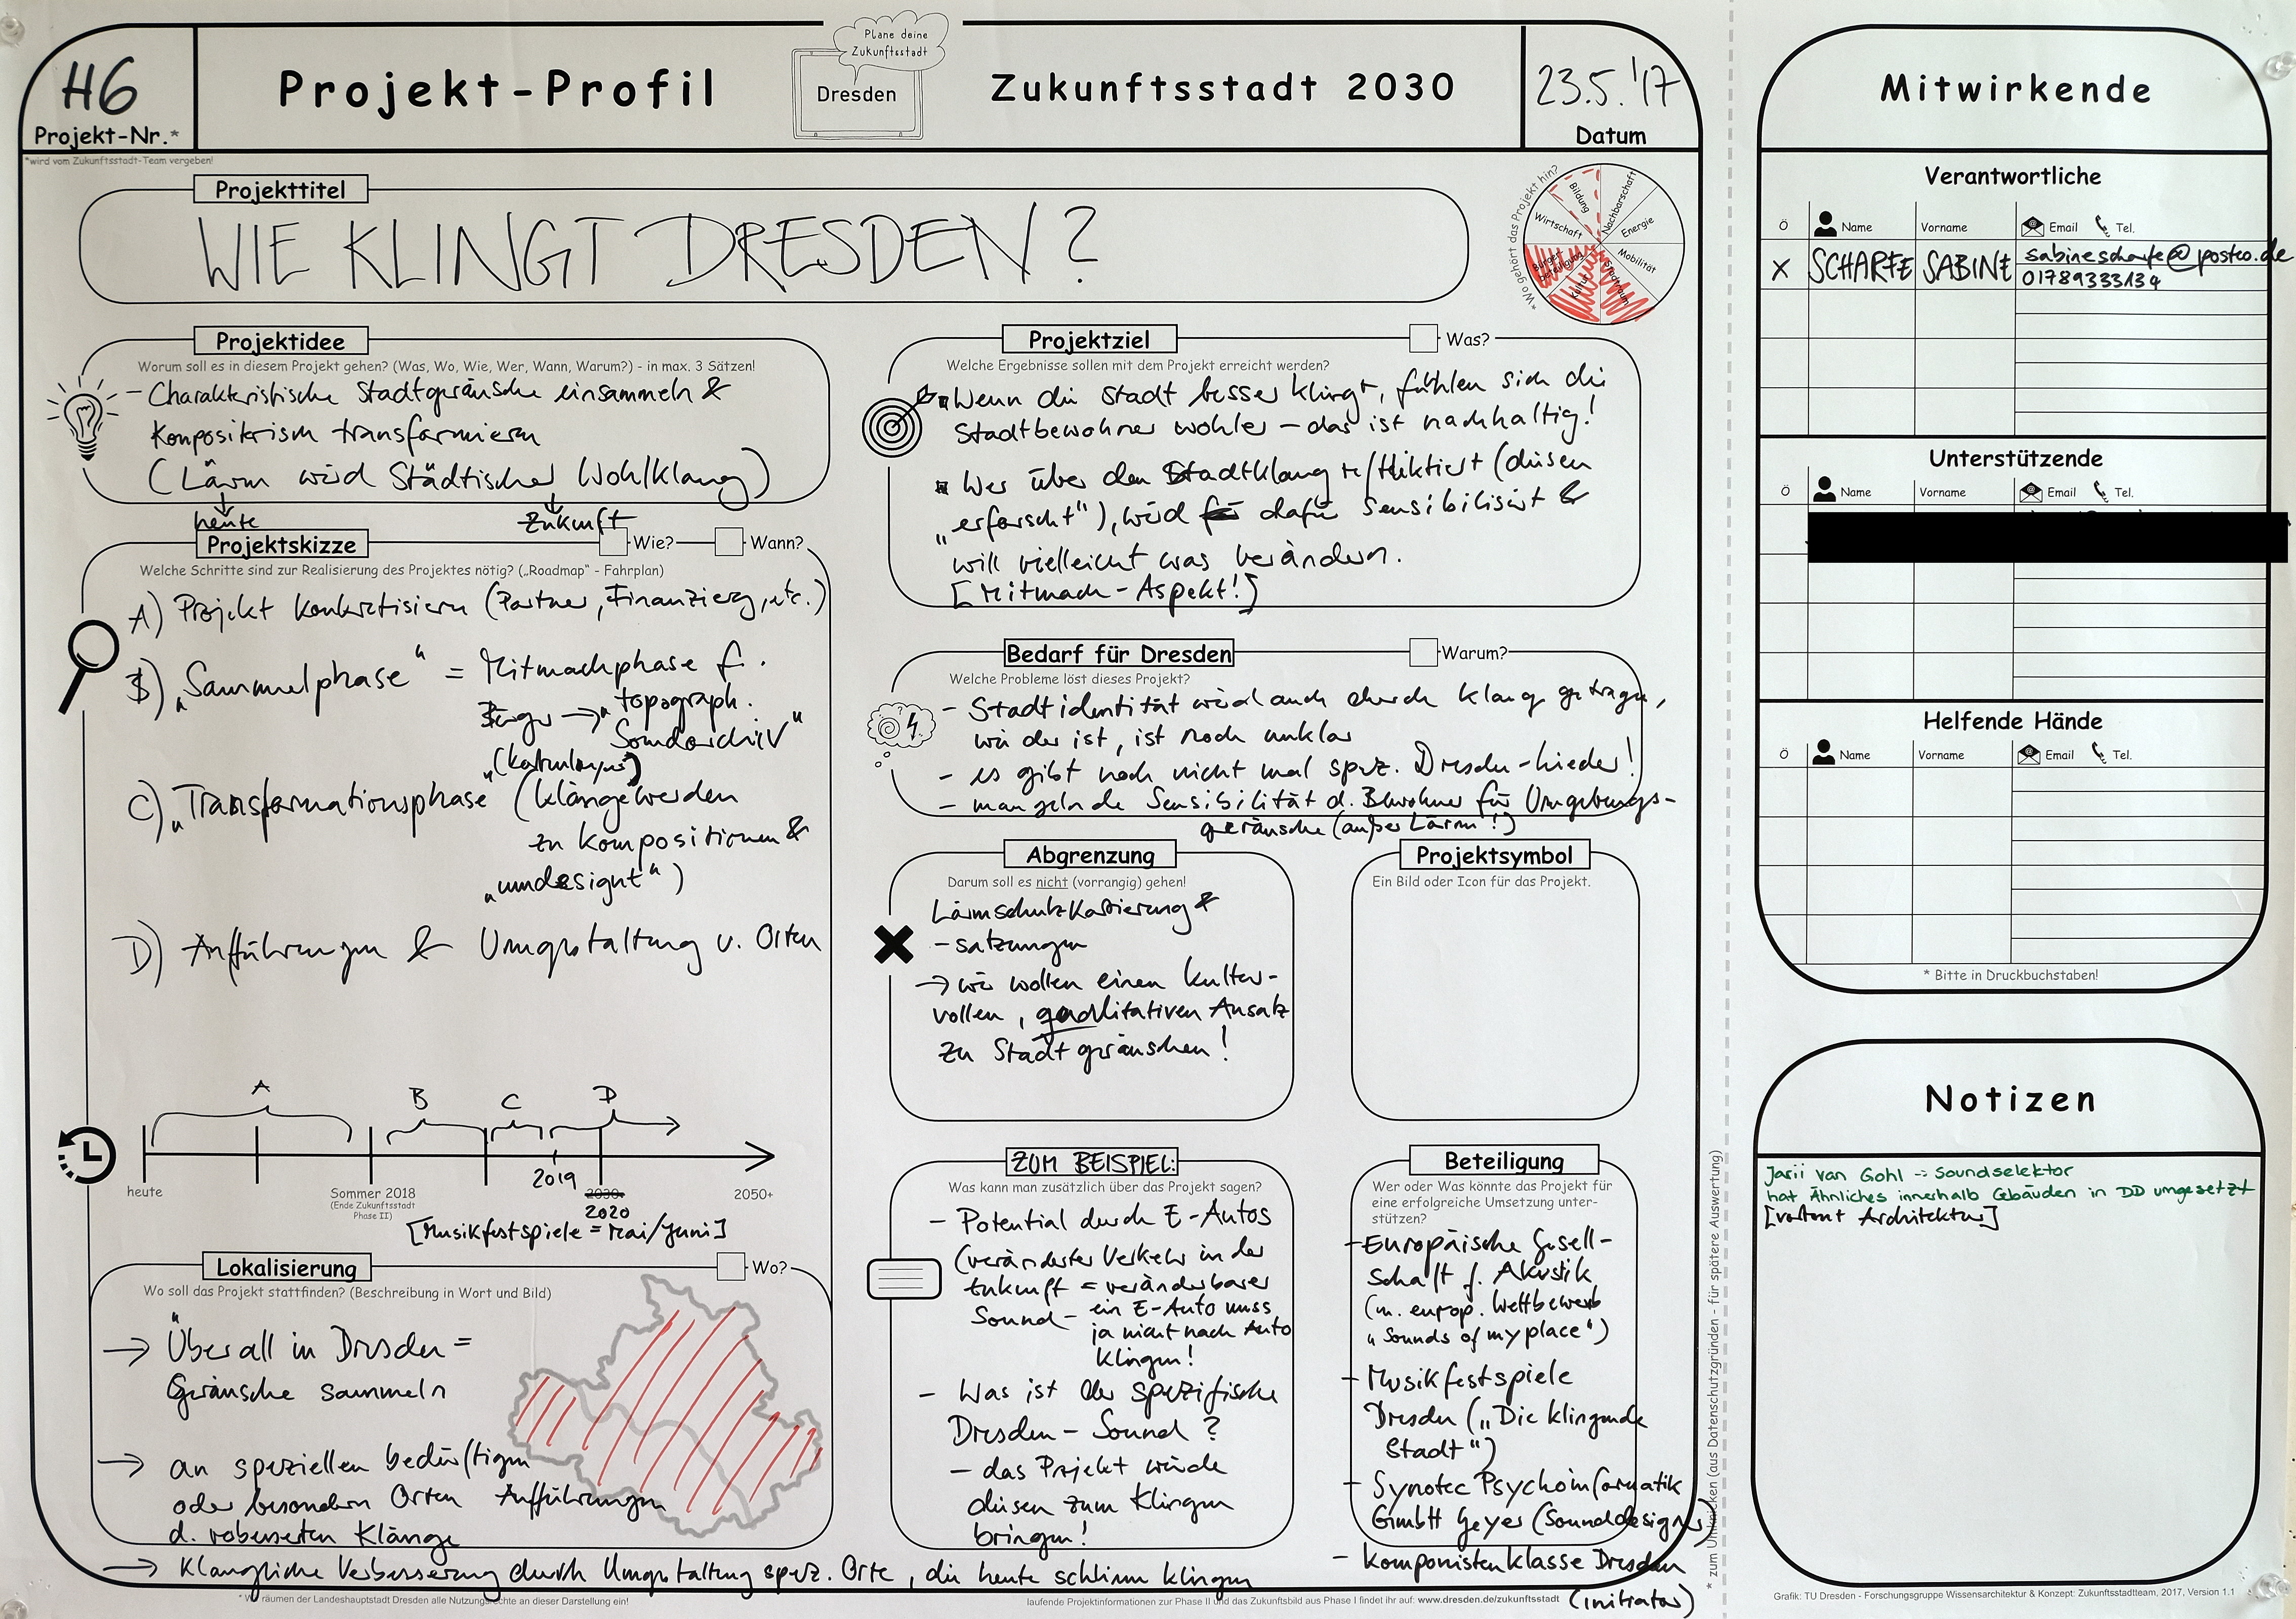 H6
Projekt-Nr.*
*wird vom Zukunftsstadt-Team vergeben!
Projekt-Profil
Plane deine
Zukunftsstadt
Dresden
Zukunftsstadt 2030
23.5.'17
Datum
Projekttitel
WIE KLINGT DRESDEN?
*Wo gehört das Projekt hin?
Bildung
Nachbarschaft
Energie
Mobilität
Stadtraum
Kultur
Bürger-
beteiligung
Wirtschaft
Projektidee
Worum soll es in diesem Projekt gehen? (Was, Wo, Wie, Wer, Wann, Warum?) - in max. 3 Sätzen!
- Charakteristische Stadtgeräusche einsammeln &
kompositorisch transformieren
(Lärm wird Städtischer Wohlklang)
heute
Zukunft
Projektskizze
Wie?
Wann?
Welche Schritte sind zur Realisierung des Projektes nötig? („Roadmap" - Fahrplan)
A) Projekt konkretisieren (Partner, Finanzierg, etc.)
B) „Sammelphase" = Mitmachphase f.
Bürger → „topograph.
Soundarchiv"
C) „Transformationsphase" (Klänge werden
zu Kompositionen &
„umdesignt")
D) Aufführungen & Umgestaltung v. Orten
A
B
C
D
heute
Sommer 2018
(Ende Zukunftsstadt
Phase II)
2019
2030+
2020
2050+
[Musikfestspiele = Mai/Juni]
Lokalisierung
Wo?
Wo soll das Projekt stattfinden? (Beschreibung in Wort und Bild)
→ Überall in Dresden =
Geräusche sammeln
→ an speziellen bedürftigen
oder besondern Orten Aufführungen
d. verbesserten Klänge
→ Klangliche Verbesserung durch Umgestaltung spez. Orte, die heute schlimm klingen
Projektziel
Was?
Welche Ergebnisse sollen mit dem Projekt erreicht werden?
Wenn die Stadt besser klingt, fühlen sich die
Stadtbewohner wohler – das ist nachhaltig!
Wer über den Stadtklang reflektiert (diesen
„erforscht"), wird dafür sensibilisiert &
will vielleicht was verändern.
[Mitmach-Aspekt!]
Bedarf für Dresden
Warum?
Welche Probleme löst dieses Projekt?
- Stadtidentität wird auch durch Klang getragen,
wie der ist, ist noch unklar
- es gibt noch nicht mal spez. Dresden-Lieder!
- mangelnde Sensibilität d. Bewohner für Umgebungs-
geräusche (außer Lärm!)
Abgrenzung
Darum soll es nicht (vorrangig) gehen!
Lärmschutzkartierung &
-satzungen
→ wir wollen einen kultur-
vollen, qualitativen Ansatz
zu Stadtgeräuschen!
Projektsymbol
Ein Bild oder Icon für das Projekt.
ZUM BEISPIEL:
Was kann man zusätzlich über das Projekt sagen?
- Potential durch E-Autos
(veränderter Verkehr in der
Zukunft = veränderbarer
Sound - ein E-Auto muss
ja nicht nach Auto
klingen!
- Was ist der spezifische
Dresden-Sound?
- das Projekt würde
diesen zum Klingen
bringen!
Beteiligung
Wer oder Was könnte das Projekt für
eine erfolgreiche Umsetzung unter-
stützen?
- Europäische Gesell-
schaft f. Akustik
(m. europ. Wettbewerb
„Sounds of my place")
- Musikfestspiele
Dresden („Die klingende
Stadt")
- Synotec Psychoinformatik
GmbH Geyer (Sounddesigner)
- Komponistenklasse Dresden
(initiator)
* Wir räumen der Landeshauptstadt Dresden alle Nutzungsrechte an dieser Darstellung ein!
laufende Projektinformationen zur Phase II und das Zukunftsbild aus Phase I findet ihr auf: www.dresden.de/zukunftsstadt
* zum Umknicken (aus Datenschutzgründen - für spätere Auswertung)
Mitwirkende
Verantwortliche
Ö Name Vorname Email Tel.
X SCHARFE SABINE sabinescharfe@posteo.de
01789333134
Unterstützende
Ö Name Vorname Email Tel.
Helfende Hände
Ö Name Vorname Email Tel.
* Bitte in Druckbuchstaben!
Notizen
Jarii van Gohl -> Soundselektor
hat Ähnliches innerhalb Gebäuden in DD umgesetzt
[vertont Architektur]
Grafik: TU Dresden - Forschungsgruppe Wissensarchitektur & Konzept: Zukunftsstadtteam, 2017, Version 1.1